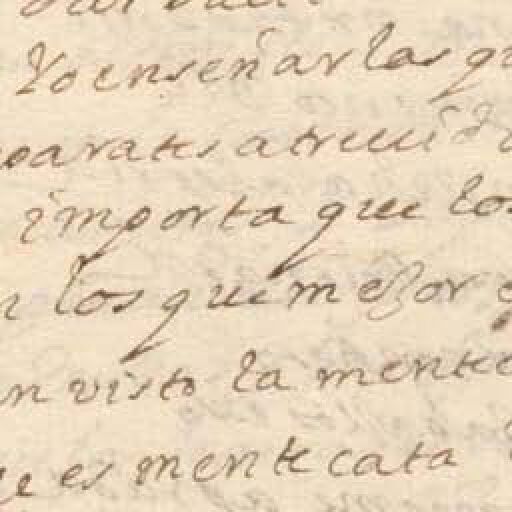 Yo enseñar las qu
parates atreuido
importa que los
n los que mejor e
an visto la mente
ue es mentecata